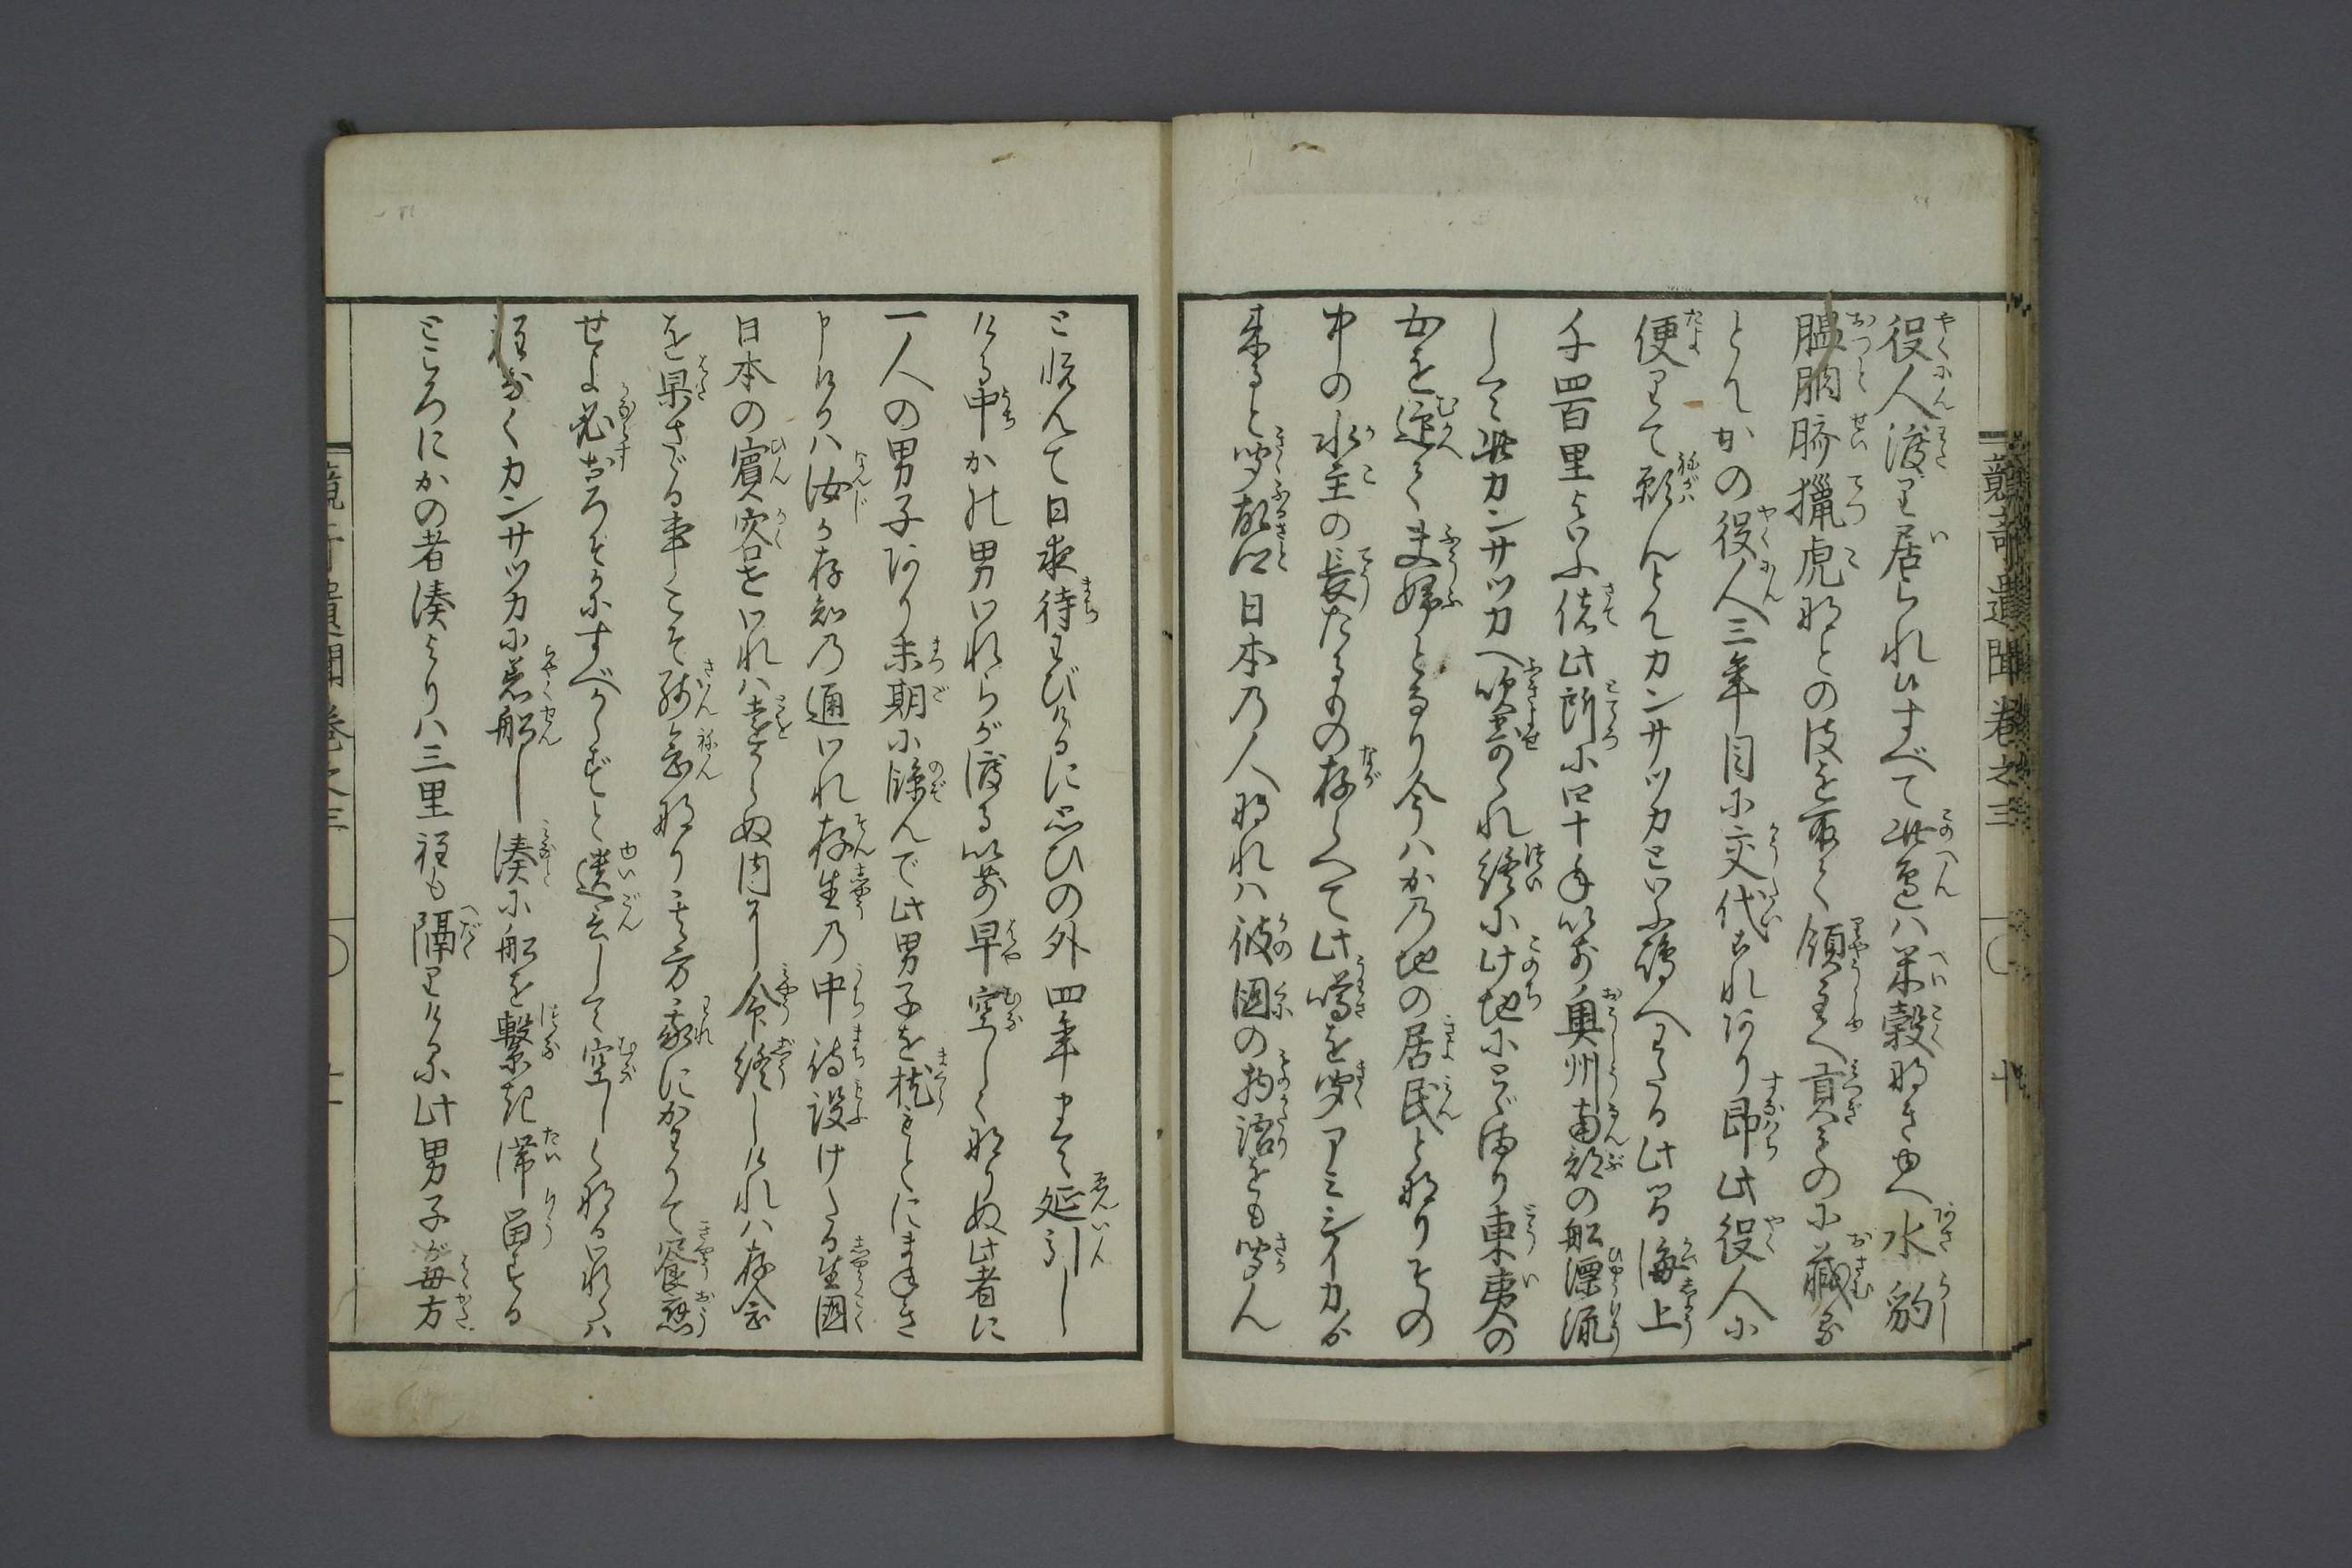 役人渡り居られ候すべて此邊ハ米穀なきゆへ水豹
膃肭臍猟虎などの皮を取て領主へ貢ものに蔵る
とてかの役人三年目に交代これあり即此役人に
便りて願んとてカンサツカといふ嶋へわたる此間海上
千四百里といふ偖此所に四十年以前奥州南部の船漂流
して此カンサツカへ吹寄られ終に此地にとゞまり東夷の
女を迎て夫婦となり今ハかの地の居民となりその
中の水主の長たるもの存らへて此噂を聞アミシイカが
来ると聞故郷日本の人なれハ彼國の物語をも聞ん
と悦んて日夜待わびけるに思ひの外四年まて延引し
ける中かれ男われらが渡る以前早空しくなりぬ此者に
一人の男子あり末期に臨んで此男子を枕もとにまねき
申けるハ汝か存知の通われ存生の中待設けたる生國
日本の賓客をわれハ遠からぬ内に命終しけれハ存念
を果さゞる事こそ残念なり其方我にかわりて饗應
せよ必おろそかにすべからずと遺言して空しくなるわれらハ
程なくカンサツカに着船し湊に船を繋ぎ滞留する
ところにかの者湊よりハ三里程も隔りけるに此男子が母方
競奇遺聞巻之三